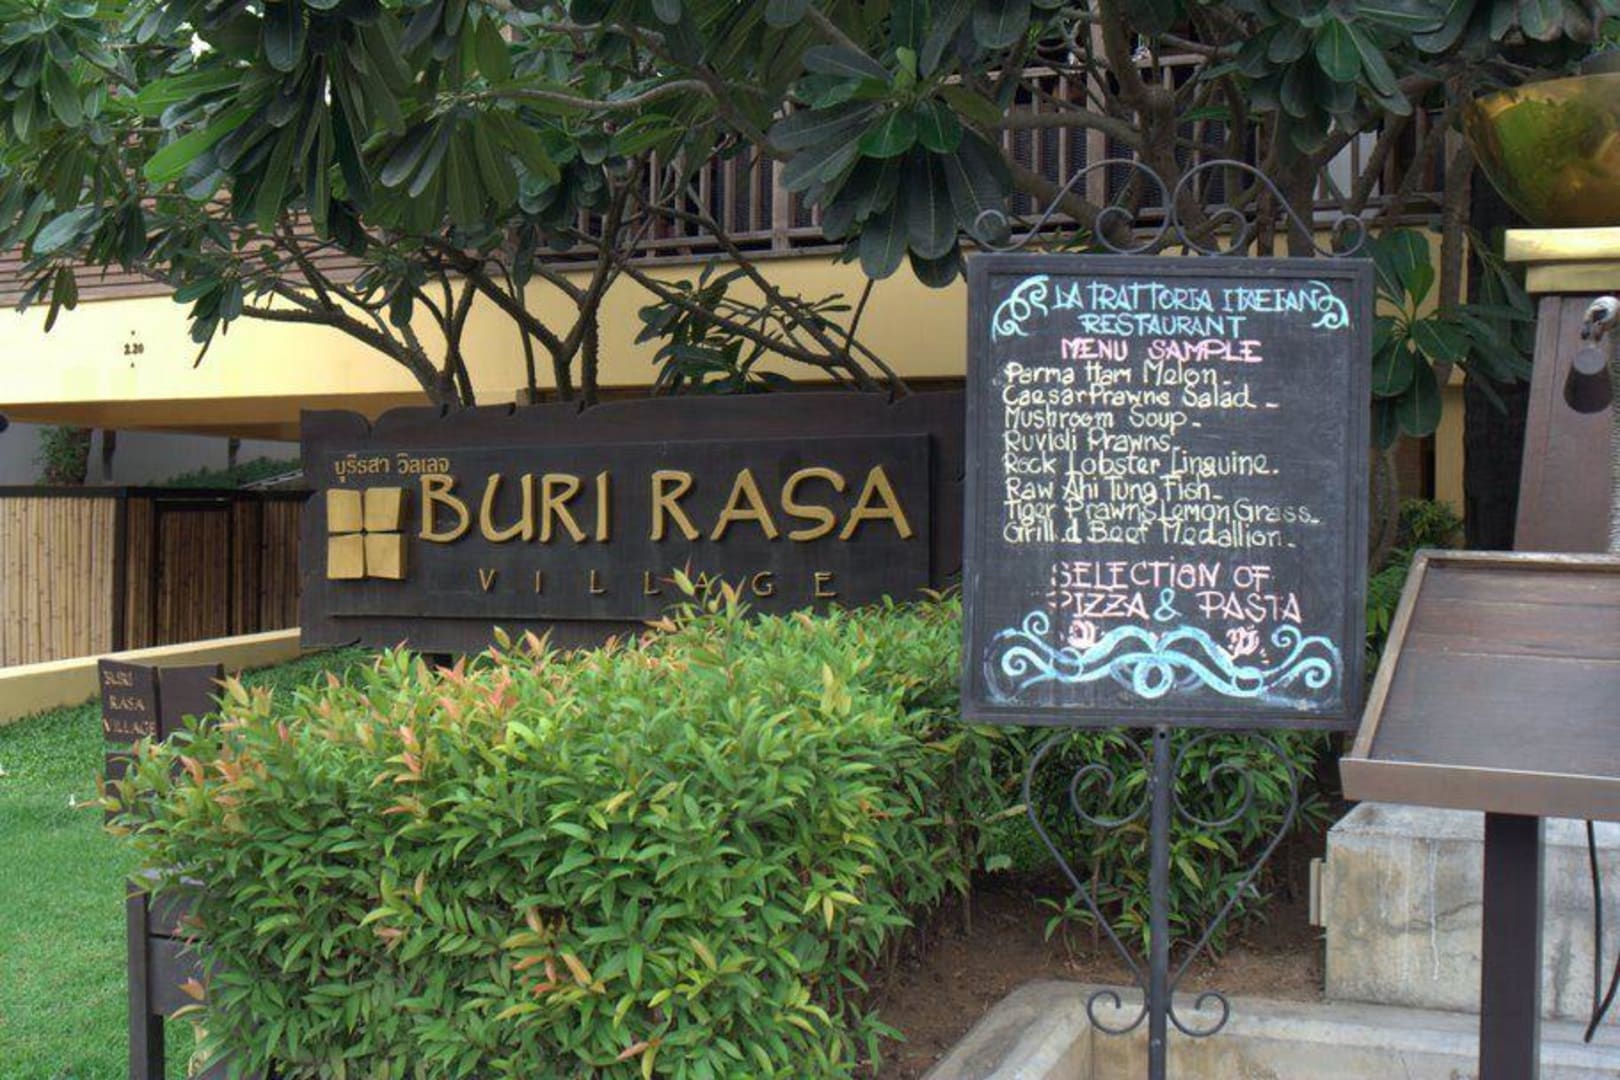 2.20
บุรีรสา วิลเลจ
BURI RASA
VILLAGE
BURI
RASA
VILLAGE
LA TRATTORIA ITAEIAN
RESTAURANT
MENU SAMPLE
Parma Ham Melon-
Caesar Prawns Salad -
Mushroom Soup-
Ruvioli Prawns-
Rock Lobster Linguine.
Raw Ahi Tung Fish-
Tiger Prawns Lemon Grass-
Grill d Beef Medallion-
SELECTION OF
PIZZA & PASTA